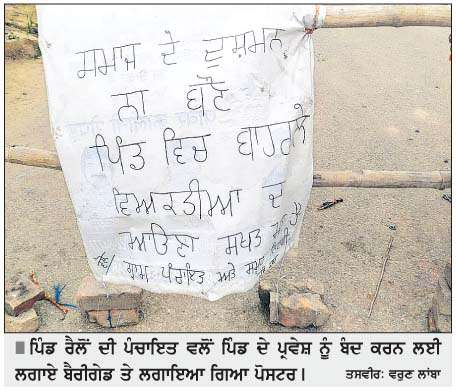 ਸਮਾਜ ਦੇ ਦੁਸ਼ਮਨ
ਨਾ ਬਣੋ
ਪਿੰਡ ਵਿਚ ਬਾਹਰਲੇ
ਵਿਅਕਤੀਆ ਦ
ਆਉਣਾ ਸਖਤ ਮਨਾ ਹੈ
ਗ੍ਰਾਮ ਪੰਚਾਇਤ ਅਤੇ ਸਮੂਹ
■ ਪਿੰਡ ਰੈਲੋਂ ਦੀ ਪੰਚਾਇਤ ਵਲੋਂ ਪਿੰਡ ਦੇ ਪ੍ਰਵੇਸ਼ ਨੂੰ ਬੰਦ ਕਰਨ ਲਈ
ਲਗਾਏ ਬੈਰੀਗੇਡ ਤੇ ਲਗਾਇਆ ਗਿਆ ਪੋਸਟਰ। ਤਸਵੀਰ: ਵਰੁਣ ਲਾਂਬਾ